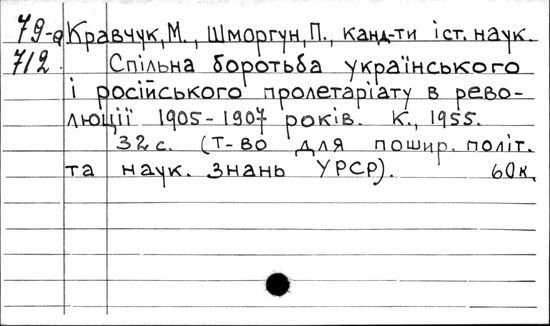 79-а Кравчук, М., Шморгун, П., канд-ти іст. наук.
712. Спільна боротьба українського
і російського пролетаріату в рево-
люції 1905-1907 років. К., 1955.
32 с. (Т-во для пошир. політ.
та наук. знань УРСР). 60 к.